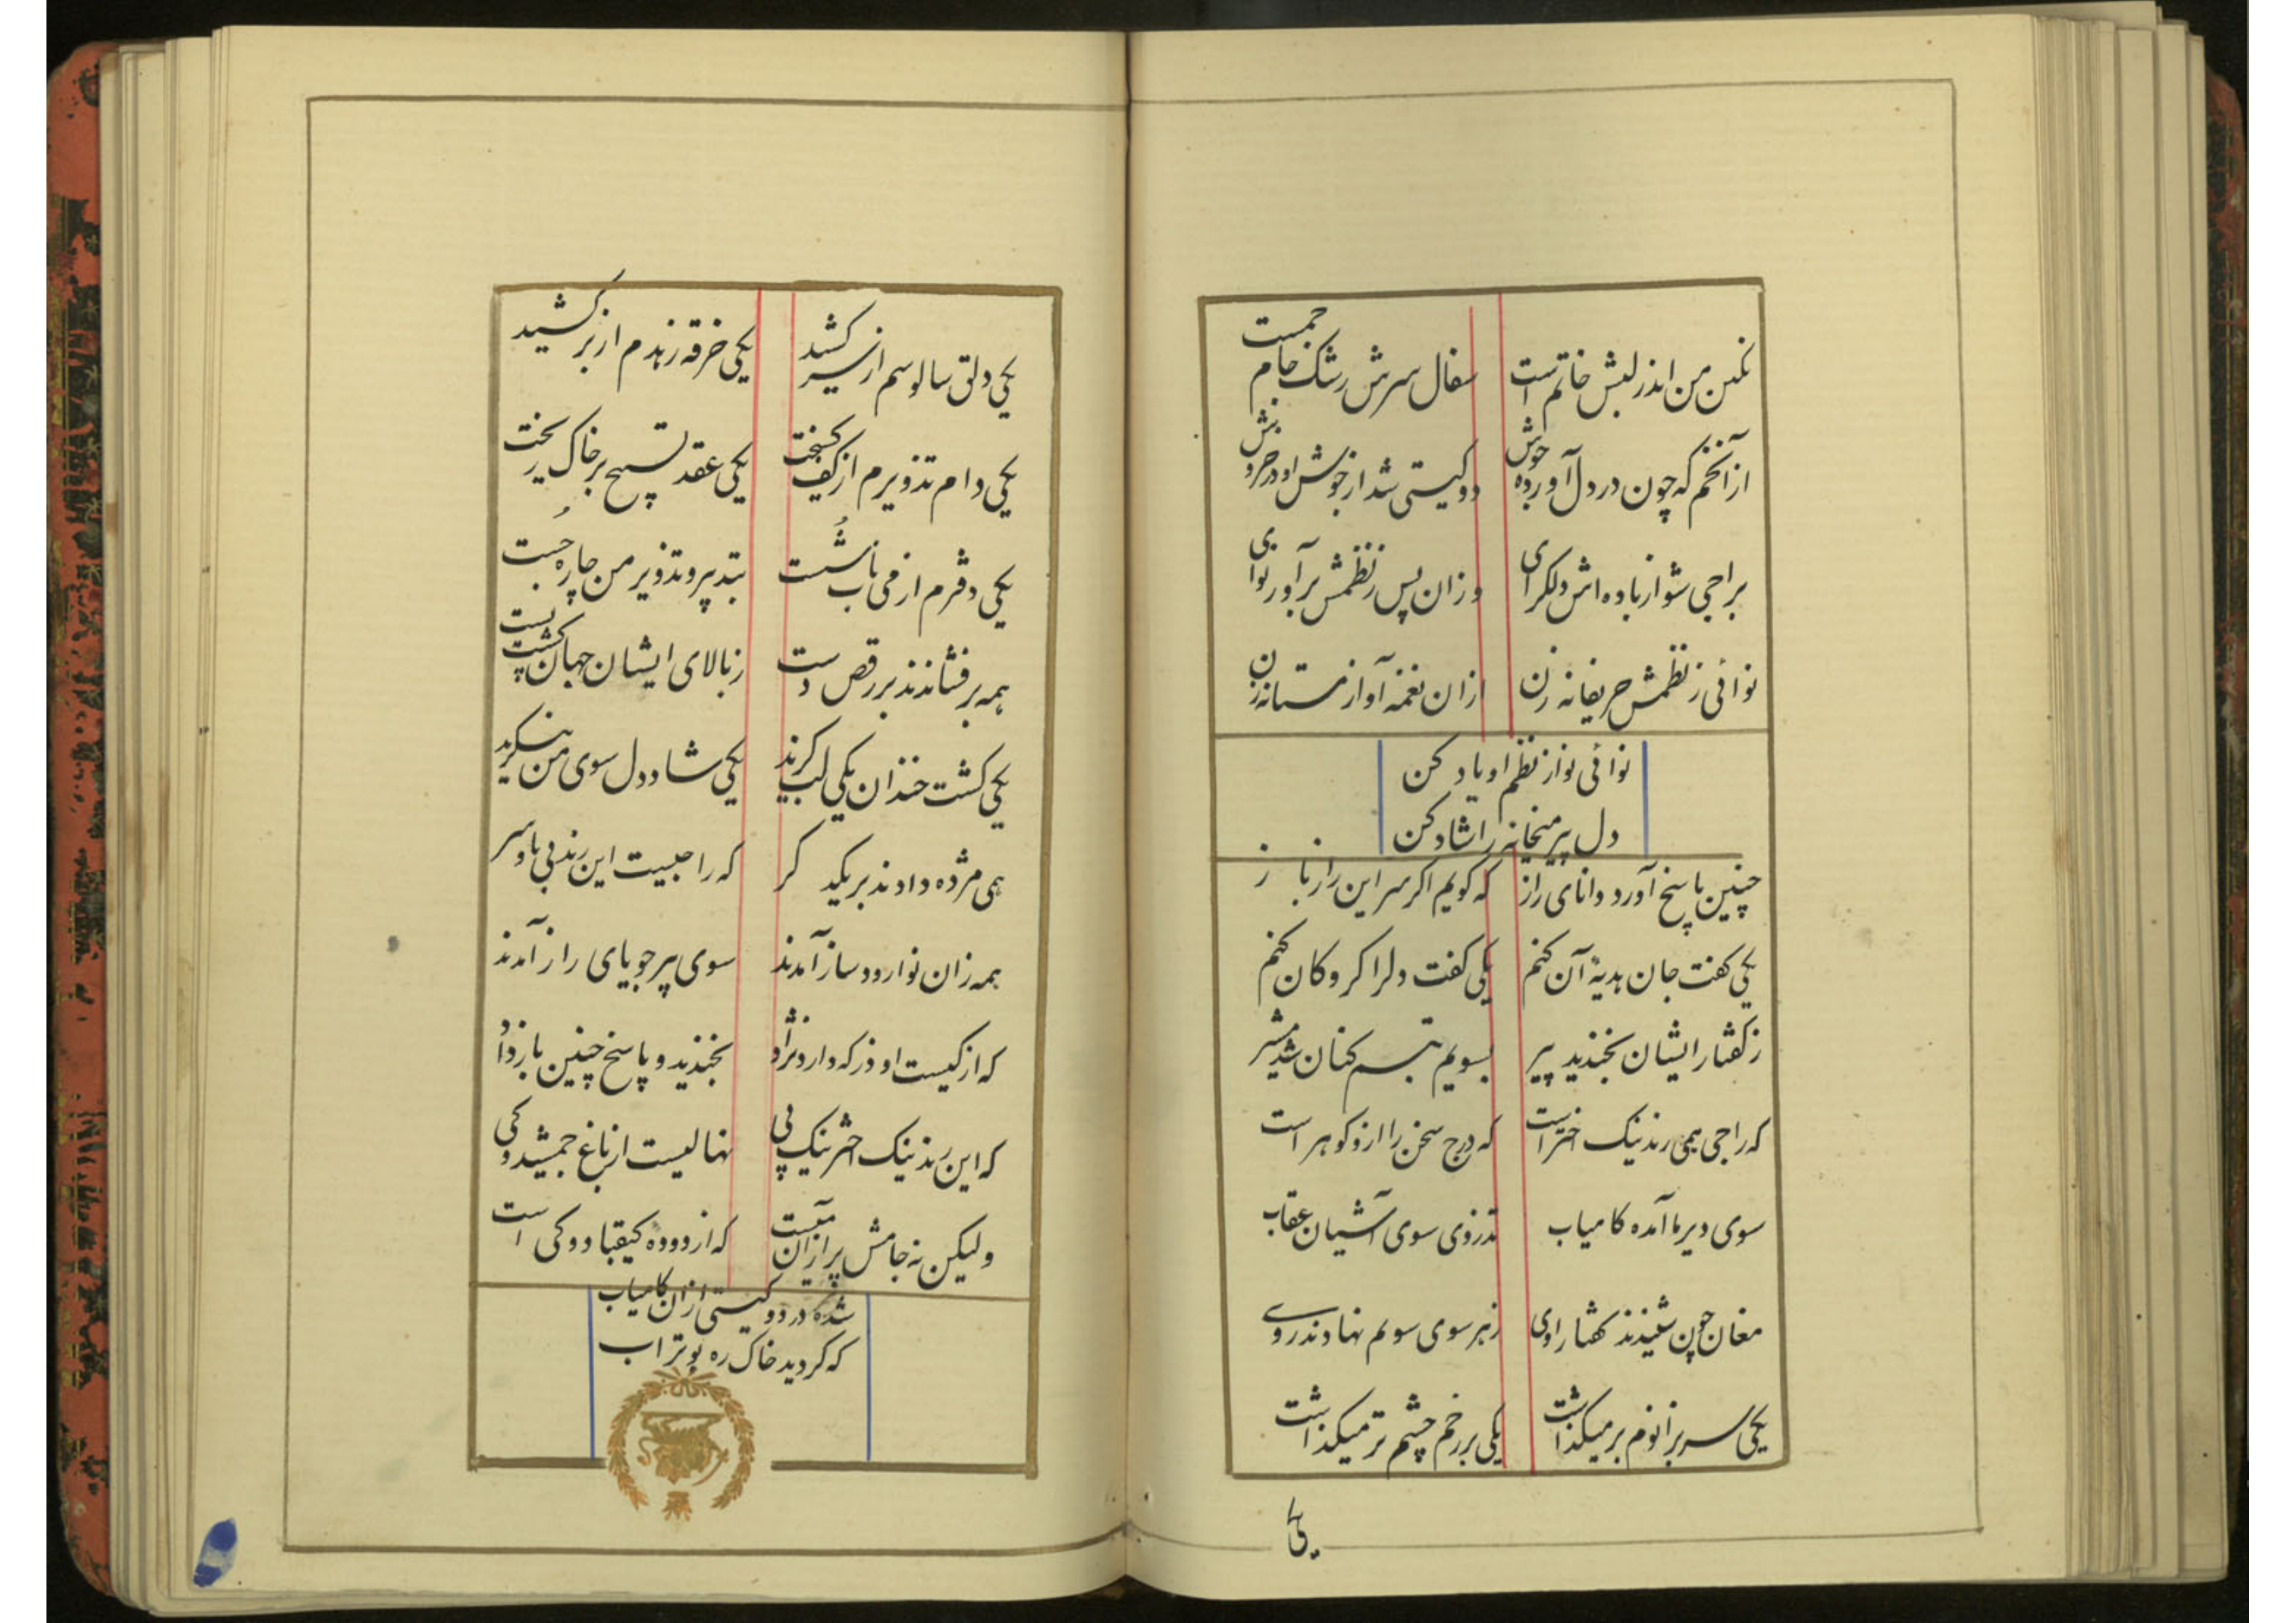 نکین من اندر لبش خاتم است سفال سرش رشک جام جمست
از آن خم که چون در دل آورده جوش دو کیتی شد از جوش او در خروش
براجی شو از باده اش دلکرای وزان پس ز نظمش برآور نوای
نوائی ز نظمش حریفانه زن ازان نغمه آواز مستانه زن
نوائی نو از نظم او یاد کن
دل پیر میخانه را شاد کن
چنین پاسخ آورد دانای راز که کویم اکر سر این راز باز
یکی کفت جان هدیهٔ آن کنم یکی کفت دلرا کروکان کنم
ز کفتار ایشان بخندید پیر بسویم تبسم کنان شد مشیر
که راجی همی رند نیک اختر است که درج سخن را ازو کوهر است
سوی دیر ما آمده کامیاب تذروی سوی آشیان عقاب
مغان چون شنیدند کفتار اوی ز هر سوی سویم نهادند روی
یکی سر بزانوم بر میکذاشت یکی بر رخم چشم تر میکذاشت
یکی
یکی دلق سالوسم از سر کشید یکی خرقه زهدم از بر کشید
یکی دام تذویرم از کف کسیخت یکی عقد تسبیح بر خاک ریخت
یکی دفترم از می ناب شُست بتدپیر و تذویر من چاره جُست
همه بر فشاندند بر رقص دست ز بالای ایشان جهان کشت پست
یکی کشت خندان یکی لب کزید یکی شاد دل سوی من بنکرید
همی مژده دادند بر یکدکر که راجیست این رند بی پا و سر
همه زان نوا رود ساز آمدند سوی پیر جویای راز آمدند
که از کیست او وز که دارد نژاد بخندید و پاسخ چنین باز داد
که این رند نیک اختر نیک پی نهالیست از باغ جمشید و کی
ولیکن نه جامش پر از آن میست که از دودهٔ کیقباد و کی است
شده در دو کیتی ازان کامیاب
که کردید خاک ره بوتراب